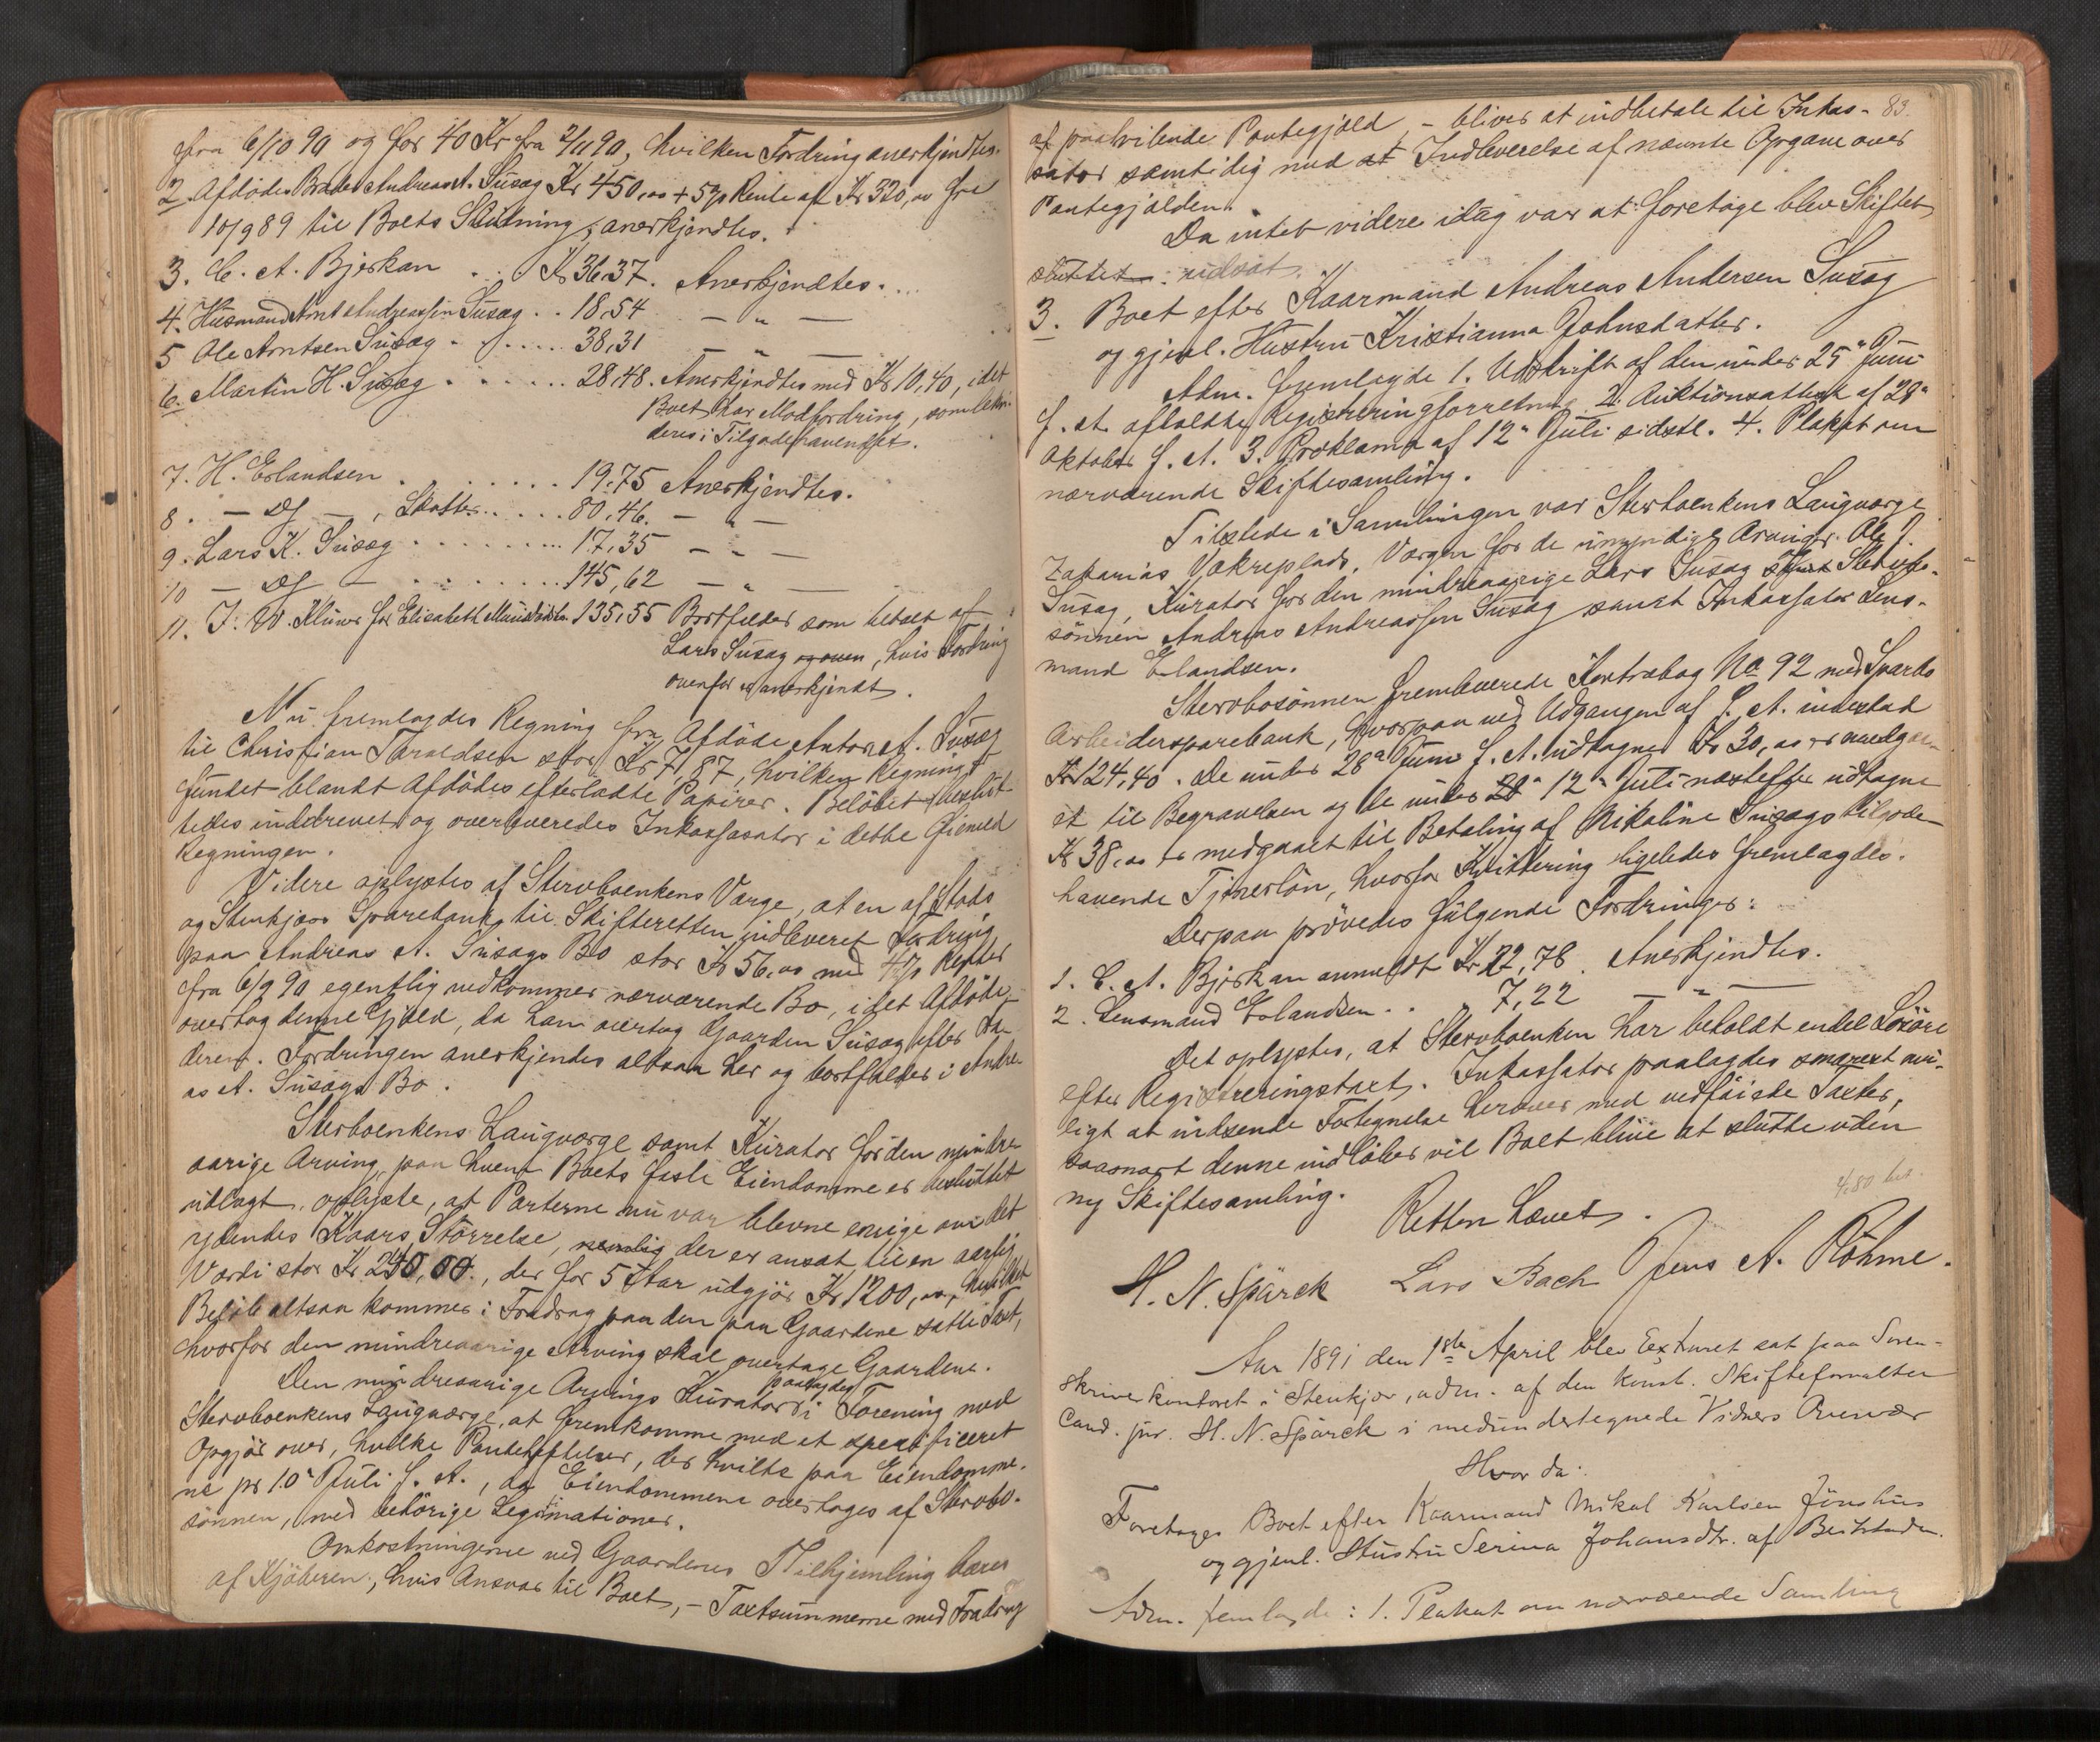 fra 6/10 90 og for 40 Kr fra 2/11 90, hvilken Fordring anerkjendtes.
2 Afdødes Broder Andreas A. Susæg Kr 450,00 + 5% Rente af Kr 320,00 fra
10/9 89 til Boets Slutning, anerkjendtes.
3. C. A. Bjerkan . . . Kr 36,37. Anerkjendtes.
4. Husmand Arnt Andreassen Susæg . . 18,54 — " —
5 Ole Arntsen Susæg . . . . . 38,31 — " —
6. Martin H. Susæg . . . . . . 28,48. Anerkjendtes med Kr 10,40, idet
Boet har Modfordring, som
deres i Tilgodehavendet.
7. H. Erlandsen . . . . . . . 19,75 Anerkjendtes.
8. — Ds —, Skatter . . . . . 80,46. — " —
9. Lars K. Susæg . . . . . . . 17,35 — " —
10 — Ds — . . . . . . . 145,62 — " —
11. I. W. Klüwer for Elisabeth 135,55 Bortfalder som betalt af
Lars Susæg og oven, hvis Fordring
ovenfor er anerkjendt.
Nu fremlagdes Regning fra Afdøde Anton A. Susæg
til Christian Taraldsen stor Kr 71,87, hvilken Regning
fundet blandt Afdødes efterladte Papirer. Beløbet beslut-
tedes inddrevet og overleveredes Inkassasator i dette Øiemed
Regningen.
Videre oplystes af Stervboenkens Værge, at en af Stods
og Stenkjærs Sparebank til Skifteretten indleveret Fordring
paa Andreas A. Susægs Bo stor Kr 56,00 med Renter
fra 6/9 90 egentlig vedkommer nærværende Bo, idet Afdøde
overtog denne Gjæld, da han overtog Gaarden Susæg efter Fa-
deren. Fordringen anerkjendes altsaa her og bortfalder i Andre-
as A. Susægs Bo.
Sterboenkens Laugværge samt Kurator for den mindre-
aarige Arving, paa hvem Boets faste Eiendomme er besluttet
udlagt, oplyste, at Parterne nu var blevne enige om det
ydendes Kaars Størrelse, nemlig der er ansat til en aarlig
Værdi stor Kr 240,00., der for 5 Aar udgjør Kr 1200,00, hvilket
Beløb altsaa kommer i Fradrag paa den paa Gaardene satte Taxt,
hvorfor den mindreaarige Arving skal overtage Gaardene.
Den mindreaarige Arvings Kurator paalagdes i Forening med
Stervboenkens Laugværge, at fremkomme med et specificeret
Opgjør over, hvilke Panteheftelser, der hvilte paa Eiendomme-
ne pr 10" Juli f. A., da Eiendommene overtoges af Stervbo-
sønnen, med behørige Legitimationer.
Omkostningerne ved Gaardenes Tilhjemling bæres
af Kjøberen, hvis Ansvar til Boet, – Taxtsummerne med Fradrag
af paahvilende Pantegjæld, – bliver at indbetale til Inkas- 83.
sator samtidig med at Indleverelse af nævnte Opgave over
Pantegjælden.
Da intet videre idag var at foretage blev Skiftet
sluttet : udsat.
3. Boet efter Kaarmand Andreas Andersen Susæg
og gjenl. Hustru Kristianna Johnsdatter.
Adm. fremlagde 1. Udskrift af den under 25" Juni
f. A. afholdte Registreringsforretning 2. Auktionsattest af 28"
Oktober f. A. 3. Proklama af 12" Juli sidstl. 4. Plakat om
nærværende Skiftesamling.
Tilstede i Samlingen var Sterboenkens Laugværge
Zakarias Vækreplads, Værgen for de umyndige Arvinger Ole
Susæg, Kurator for den mindreaarige Lars Susæg Stervbo-
sønnen Andreas Andreassen Susæg samt Inkassator Lens-
mand Erlandsen.
Stervbosønnen fremleverede Kontrabog No 92 med Sparbo
Arbeidersparebank, hvorpaa ved Udgangen af f. A. indestod
Kr 124,40. De under 28" Juni f. A. udtagne Kr 30,00 er medgaa-
et til Begravelsen og de under 28" 12" Juli næstefter udtagne
Kr 38,00 er medgaaet til Betaling af Nikoline Susægs tilgode-
havende Tjenerløn, hvorfor Kvittering ligeledes fremlagdes.
Derpaa prøvedes følgende Fordringer:
1. C. A. Bjerkan anmeldt Kr 22,78. Anerkjendtes.
2. Lensmand Erlandsen . . " 7,22 — " —
Det oplystes, at Stervboenken har beholdt endel Løsøre
efter Registreringstaxt. Inkassator paalagdes snarest mu-
ligt at indsende Fortegnelse herover med vedføiede Taxter,
saasnart denne indløber vil Boet blive at slutte uden
ny Skiftesamling.
4,80 bet
Retten hævet.
H. N. Spärck Lars Bach Jens A. Røhme.
Aar 1891 den 1ste April blev Extraret sat paa Soren-
skriverkontoret i Stenkjær, adm. af den Konst. Skifteforvalter
Cand. jur. H. N. Spärck i medundertegnede Vidners Overvær
Hvor da:
Foretoges Boet efter Kaarmand Mikal Karlsen
og gjenl. Hustru Serina Johansdtr. af Beitstaden.
Adm. fremlagde: 1. Plakat om nærværende Samling